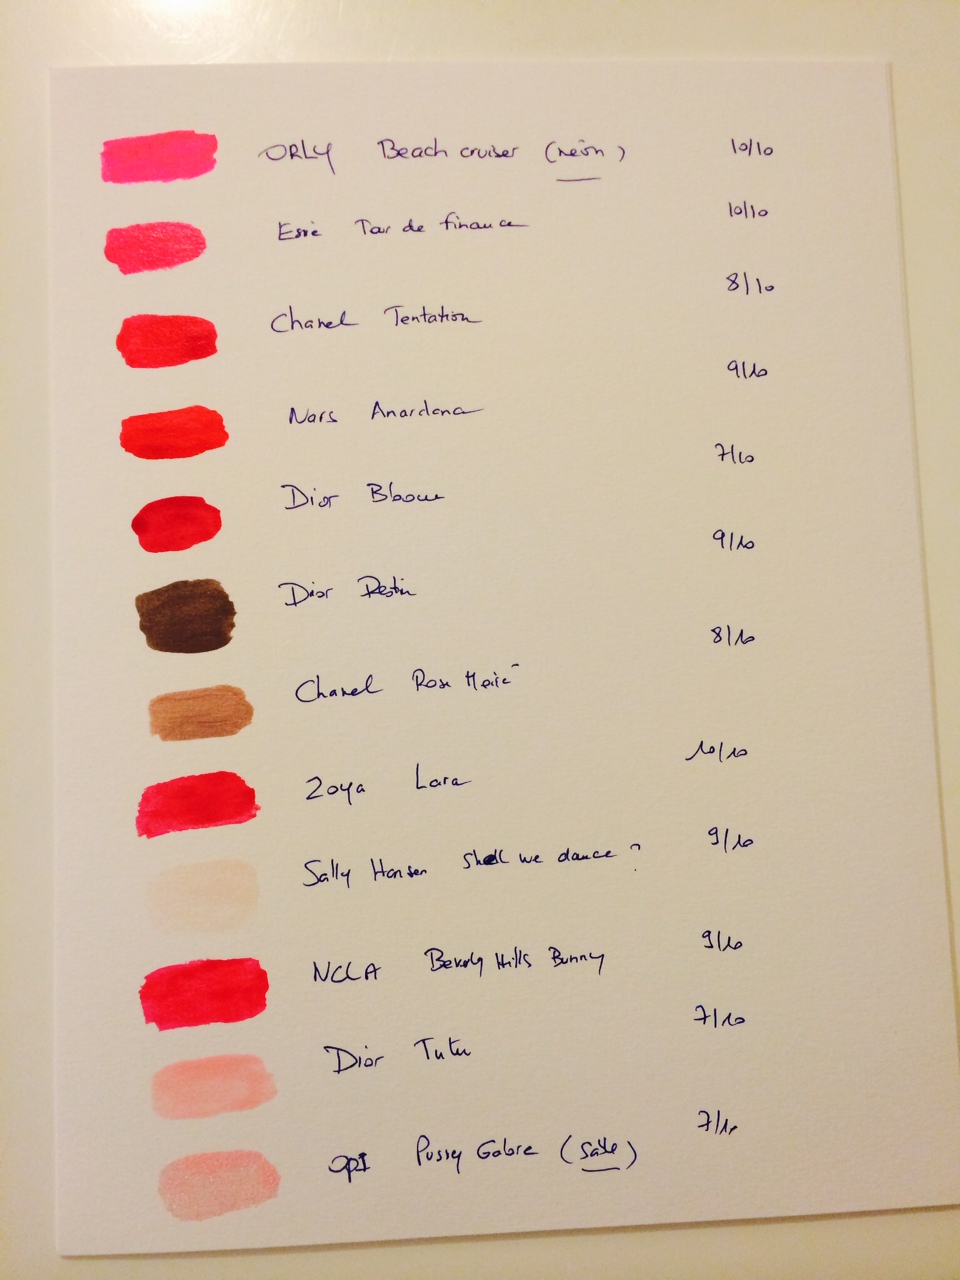 ORLY Beach cruiser (néon) 10/10
Essie Tour de finance 10/10
Chanel Tentation 8/10
Nars Anardana 9/10
Dior Bloom 7/10
Dior Destin 9/10
Chanel Rose Moiré 8/10
Zoya Lara 10/10
Sally Hansen Shall we dance ? 9/10
NCLA Beverly Hills Bunny 9/10
Dior Tutu 7/10
OPI Pussy Galore ( ) 7/10